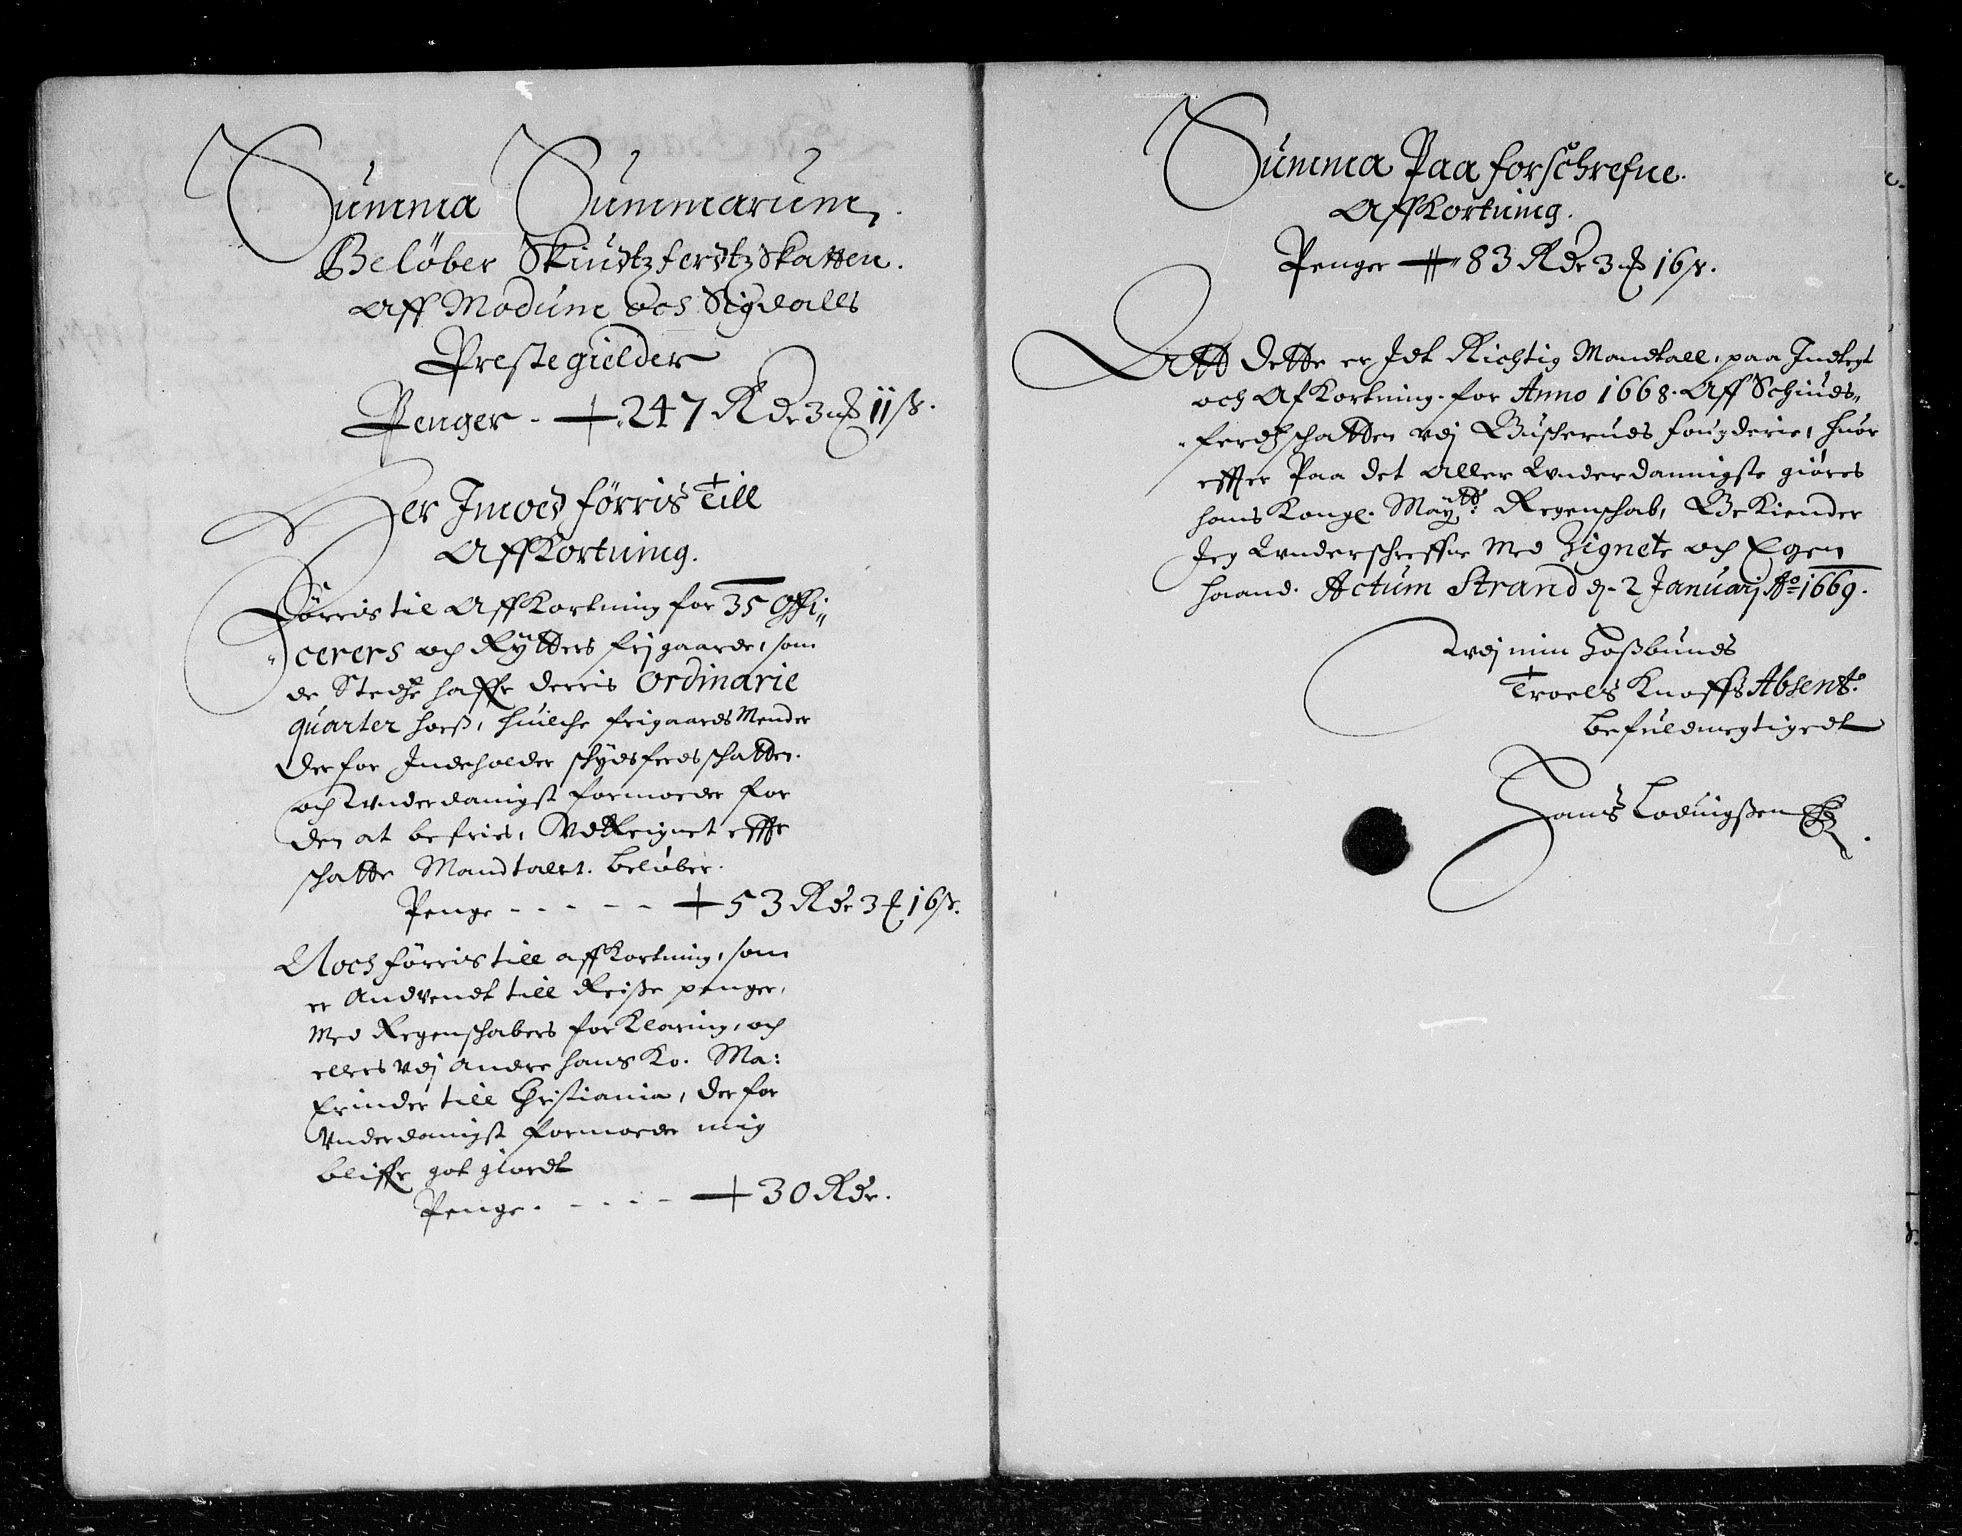 Summa Summarum,
Beløber Skiudtzferdtz Skatten.
Aff Modum och Sigdalls
Prestegielder
Penger - 247 Rdr 3 mk 11 s.
Her Imod førris Till
AffKortning.
Førris til AffKortning for 35 Offi„
„cerers och Rÿtters frj gaarde, som
de Stedtze haffr derris Ordinarie
quarter hoeß, huilche frigaardsMender
derfor Indeholder schÿdsferdsschatten.
och Vnderdanigst formoeder for
den at befries, Vdreignet effter
schatte Mandtalet. beløber.
Penge - - - - - 53 Rdr 3 mk 16 s.
Noch førris till affKortning, som
er Andvendt till Reiße penger,
Med Regenschabers forKlaring, och
ellers vdj Andre hans Ko. Ma:
Erinder till Christiania, derfor
Vnderdanigst formoeder mig
bliffr got giordt
Penge - - - - 30 Rdr.
Summa Paa forschrefne.
AffKortning.
Penger 83 Rdr 3 mk 16 s.
Att dette er Idt Richtig Mandtall, paa Indtegt
och AfKortning for Anno 1668. Aff Schiuds„
„ferdtzschatten vdj Buscheruds fougderie, huor
effter Paa det Aller Vnderdannigste giøres
hans Kongl. Maÿtt: Regenschab, BeKiender
Jeg Vnderschreffne Med Zignete och Egen
haand. Actum Strand d. 2 Januarj Ao 1669.
Vdj min Hoßbunds
Troels Knoffs Absents.
befuldmegtigedt
Hans Lodvigßen